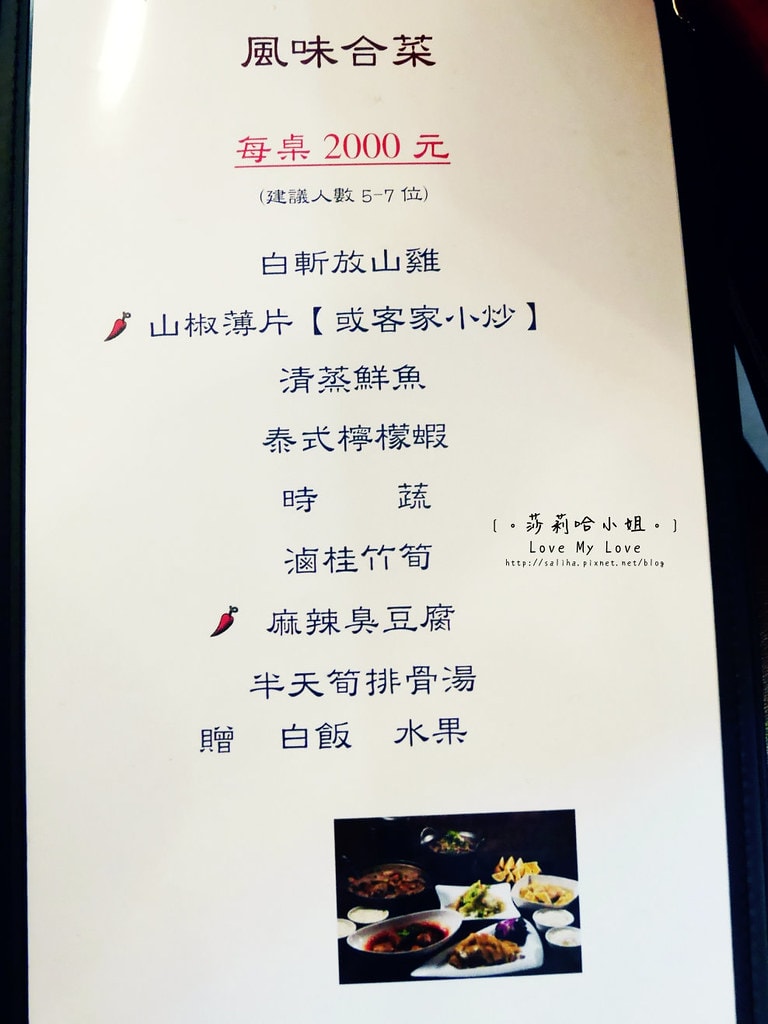 風味合菜
每桌 2000 元
(建議人數 5-7 位)
白斬放山雞
山椒薄片【或客家小炒】
清蒸鮮魚
泰式檸檬蝦
時 蔬
滷桂竹筍
麻辣臭豆腐
半天筍排骨湯
贈 白飯 水果
{。莎莉哈小姐。}
Love My Love
http://saliha.pixnet.net/blog